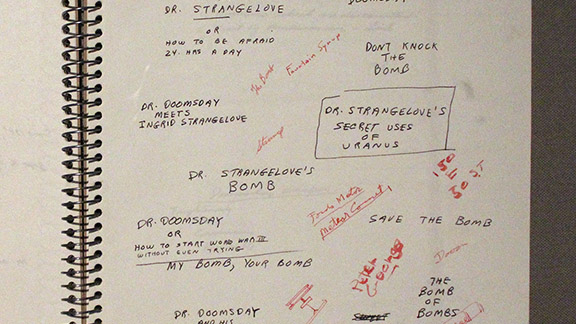 DR. STRANGELOVE
OR
HOW TO BE AFRAID
24 HRS A DAY
DOOMSDAY
DONT KNOCK
THE
BOMB
The Bomb
Fountain Syrup
DR. DOOMSDAY
MEETS
INGRID STRANGELOVE
DR. STRANGELOVE'S
SECRET USES
OF
URANUS
DR. STRANGELOVE'S
BOMB
150
4
30 ST
DR. DOOMSDAY
OR
HOW TO START WORD WAR III
WITHOUT EVEN TRYING
SAVE THE BOMB
MY BOMB, YOUR BOMB
PETER
THE
BOMB
OF
BOMBS
DR. DOOMSDAY
AND HIS